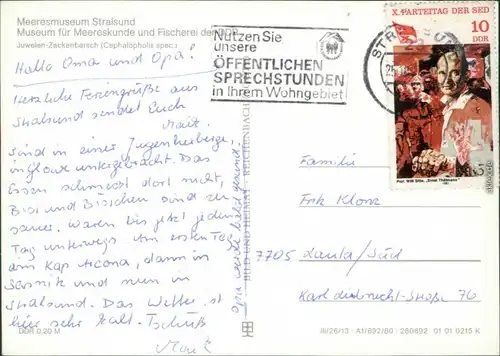 Meeresmuseum Stralsund
Museum für Meereskunde und Fischerei der DDR
Juwelen-Zackenbarsch (Cephalopholis spec.)
Hallo Oma und Opa!
Herzliche Feriengrüße aus
Stralsund sendet Euch
Maik
Sind in einer Jugendherberge
in untergebracht. Das
Essen schmeckt dort nicht,
sind zu
sauer. Waren bis jetzt jeden
Tag unterwegs. Am ersten Tag
am Kap Arcona, dann in
Sassnitz und nun in
Stralsund. Das Wetter ist
hier sehr kalt. Tschüß
Maik
Opa werde bald gesund
DDR 0,20 M
BILD UND HEIMAT REICHENBACH
Nutzen Sie
unsere
ÖFFENTLICHEN
SPRECHSTUNDEN
in Ihrem Wohngebiet
X. PARTEITAG DER SED
10
DDR
Prof. Willi Sitte, „Ernst Thälmann"
Familie
Fritz Klonz
7705 Lauta/Süd
Karl-Liebknecht-Straße 76
III/26/13 · A1/892/80 280692 01 01 0215 K